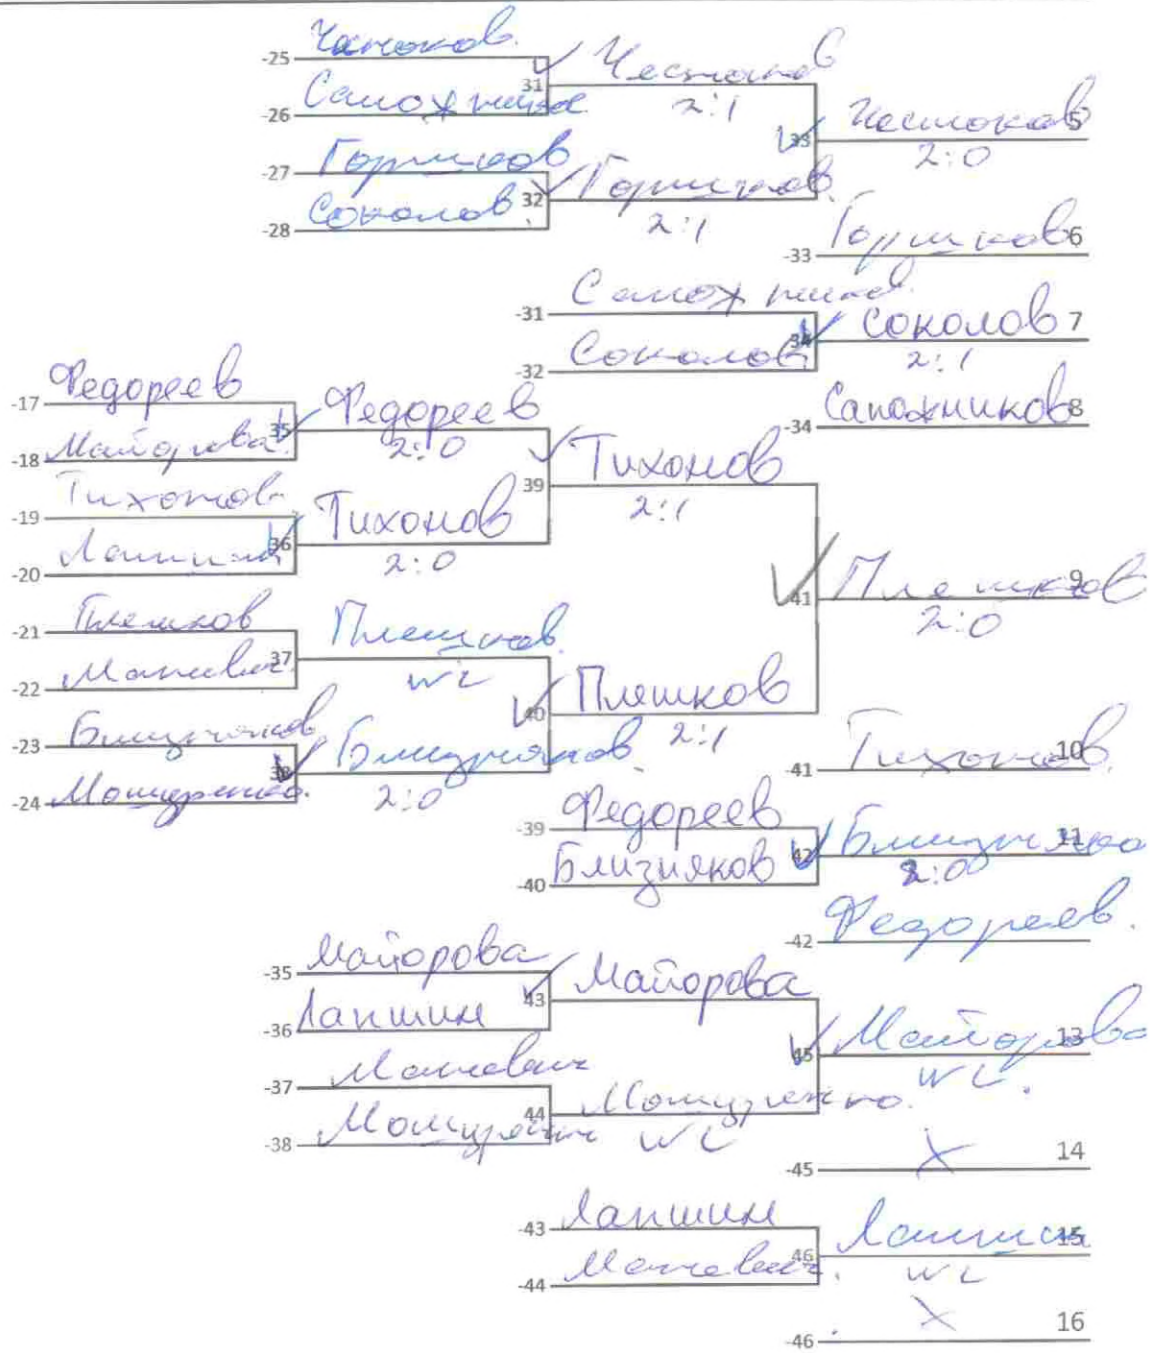 -25
31
-26
Сапожников
2:1
33
Честоков 5
2:0
-27 Горшков
-28 Соколов
32 Горшков
2:1
-33 Горшков 6
-31 Сапожников
-32 Соколов
34 Соколов 7
2:1
-34 Сапожников 8
-17 Федореев
-18 Майорова
35 Федореев
2:0
-19 Тихонов
-20 Лапшин
36 Тихонов
2:0
39 Тихонов
2:1
-21 Плешков
-22
37 Плешков
WL
-23 Близняков
-24
38 Близняков
2:0
40 Плешков
2:1
41 Плешков 9
2:0
-41 Тихонов 10
-39 Федореев
-40 Близняков
42 Близняков 11
2:0
-42 Федореев
-35 Майорова
-36 Лапшин
43 Майорова
-37
-38
44
WL
45 Майорова 13
WL
-45 X 14
-43 Лапшин
-44
46 Лапшин 15
WL
-46 X 16